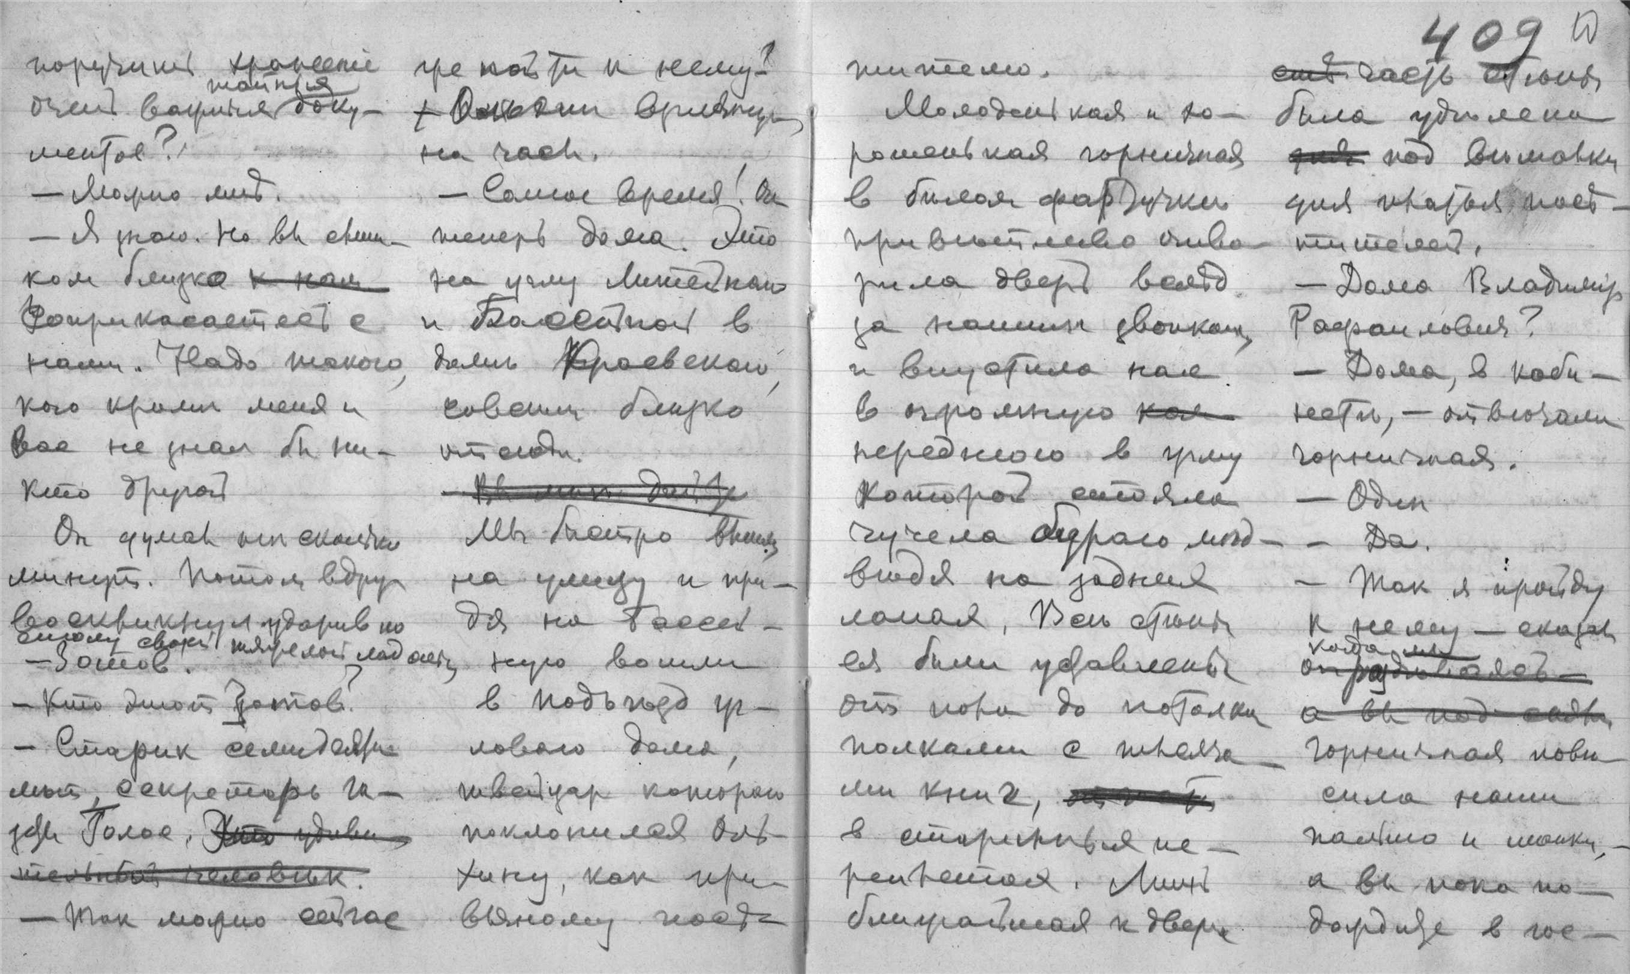 поручить хранение
тайныя
очень важныя доку-
ментов?
— Можно мне.
— Я знаю. Но вы слиш-
ком близко к нам
соприкасаетесь с
нами. Надо такого,
кого кроме меня и
вас не знал бы ни-
кто другой
Он думал несколько
минут. Потом вдруг
воскрикнул ударив по
столу своей тяжелой ладонью
— Зотов.
— Кто этот Зотов?
— Старик семидесяти
лет, секретарь га-
зеты Голос. Это удиви
тельный человек.
— Так можно сейчас
же пойти к нему?
Ольхин взглянул
на часы.
— Самое время! Он
теперь дома. Это
на углу Литейнаго
и Бассейной в
доме Краевскаго,
совсем близко
отсюда.
Мы быстро вышли
на улицу и при-
дя на Бассей-
ную вошли
в подъезд уг-
ловаго дома,
швейцар котораго
поклонился Оль-
хину, как при-
вычному посе-
409
тителю.
Молоденькая и хо-
рошенькая горничная
в белом фартучке
приветливо отво-
рила дверь вслед
за нашим звонком,
и впустила нас
в огромную
переднюю в углу
которой стояло
чучело бураго мед-
ведя на задних
лапах, Все стены
ея были уставлены
от пола до потолка
полками с тысяча-
ми книг,
в старинных пе-
реплетах. Лишь
ближайшая к двери
часть стены
была уделена
под вешалки
для платья посе-
тителей.
— Дома Владимир
Рафаилович?
— Дома, в каби-
нете, — отвечала
горничная.
— Один
— Да.
— Так я пройду
к нему — сказал
когда мы
он раздевалсь
а вы под
горничная пове-
сила наши
пальто и шапки, —
а вы пока по-
дождите в гос-